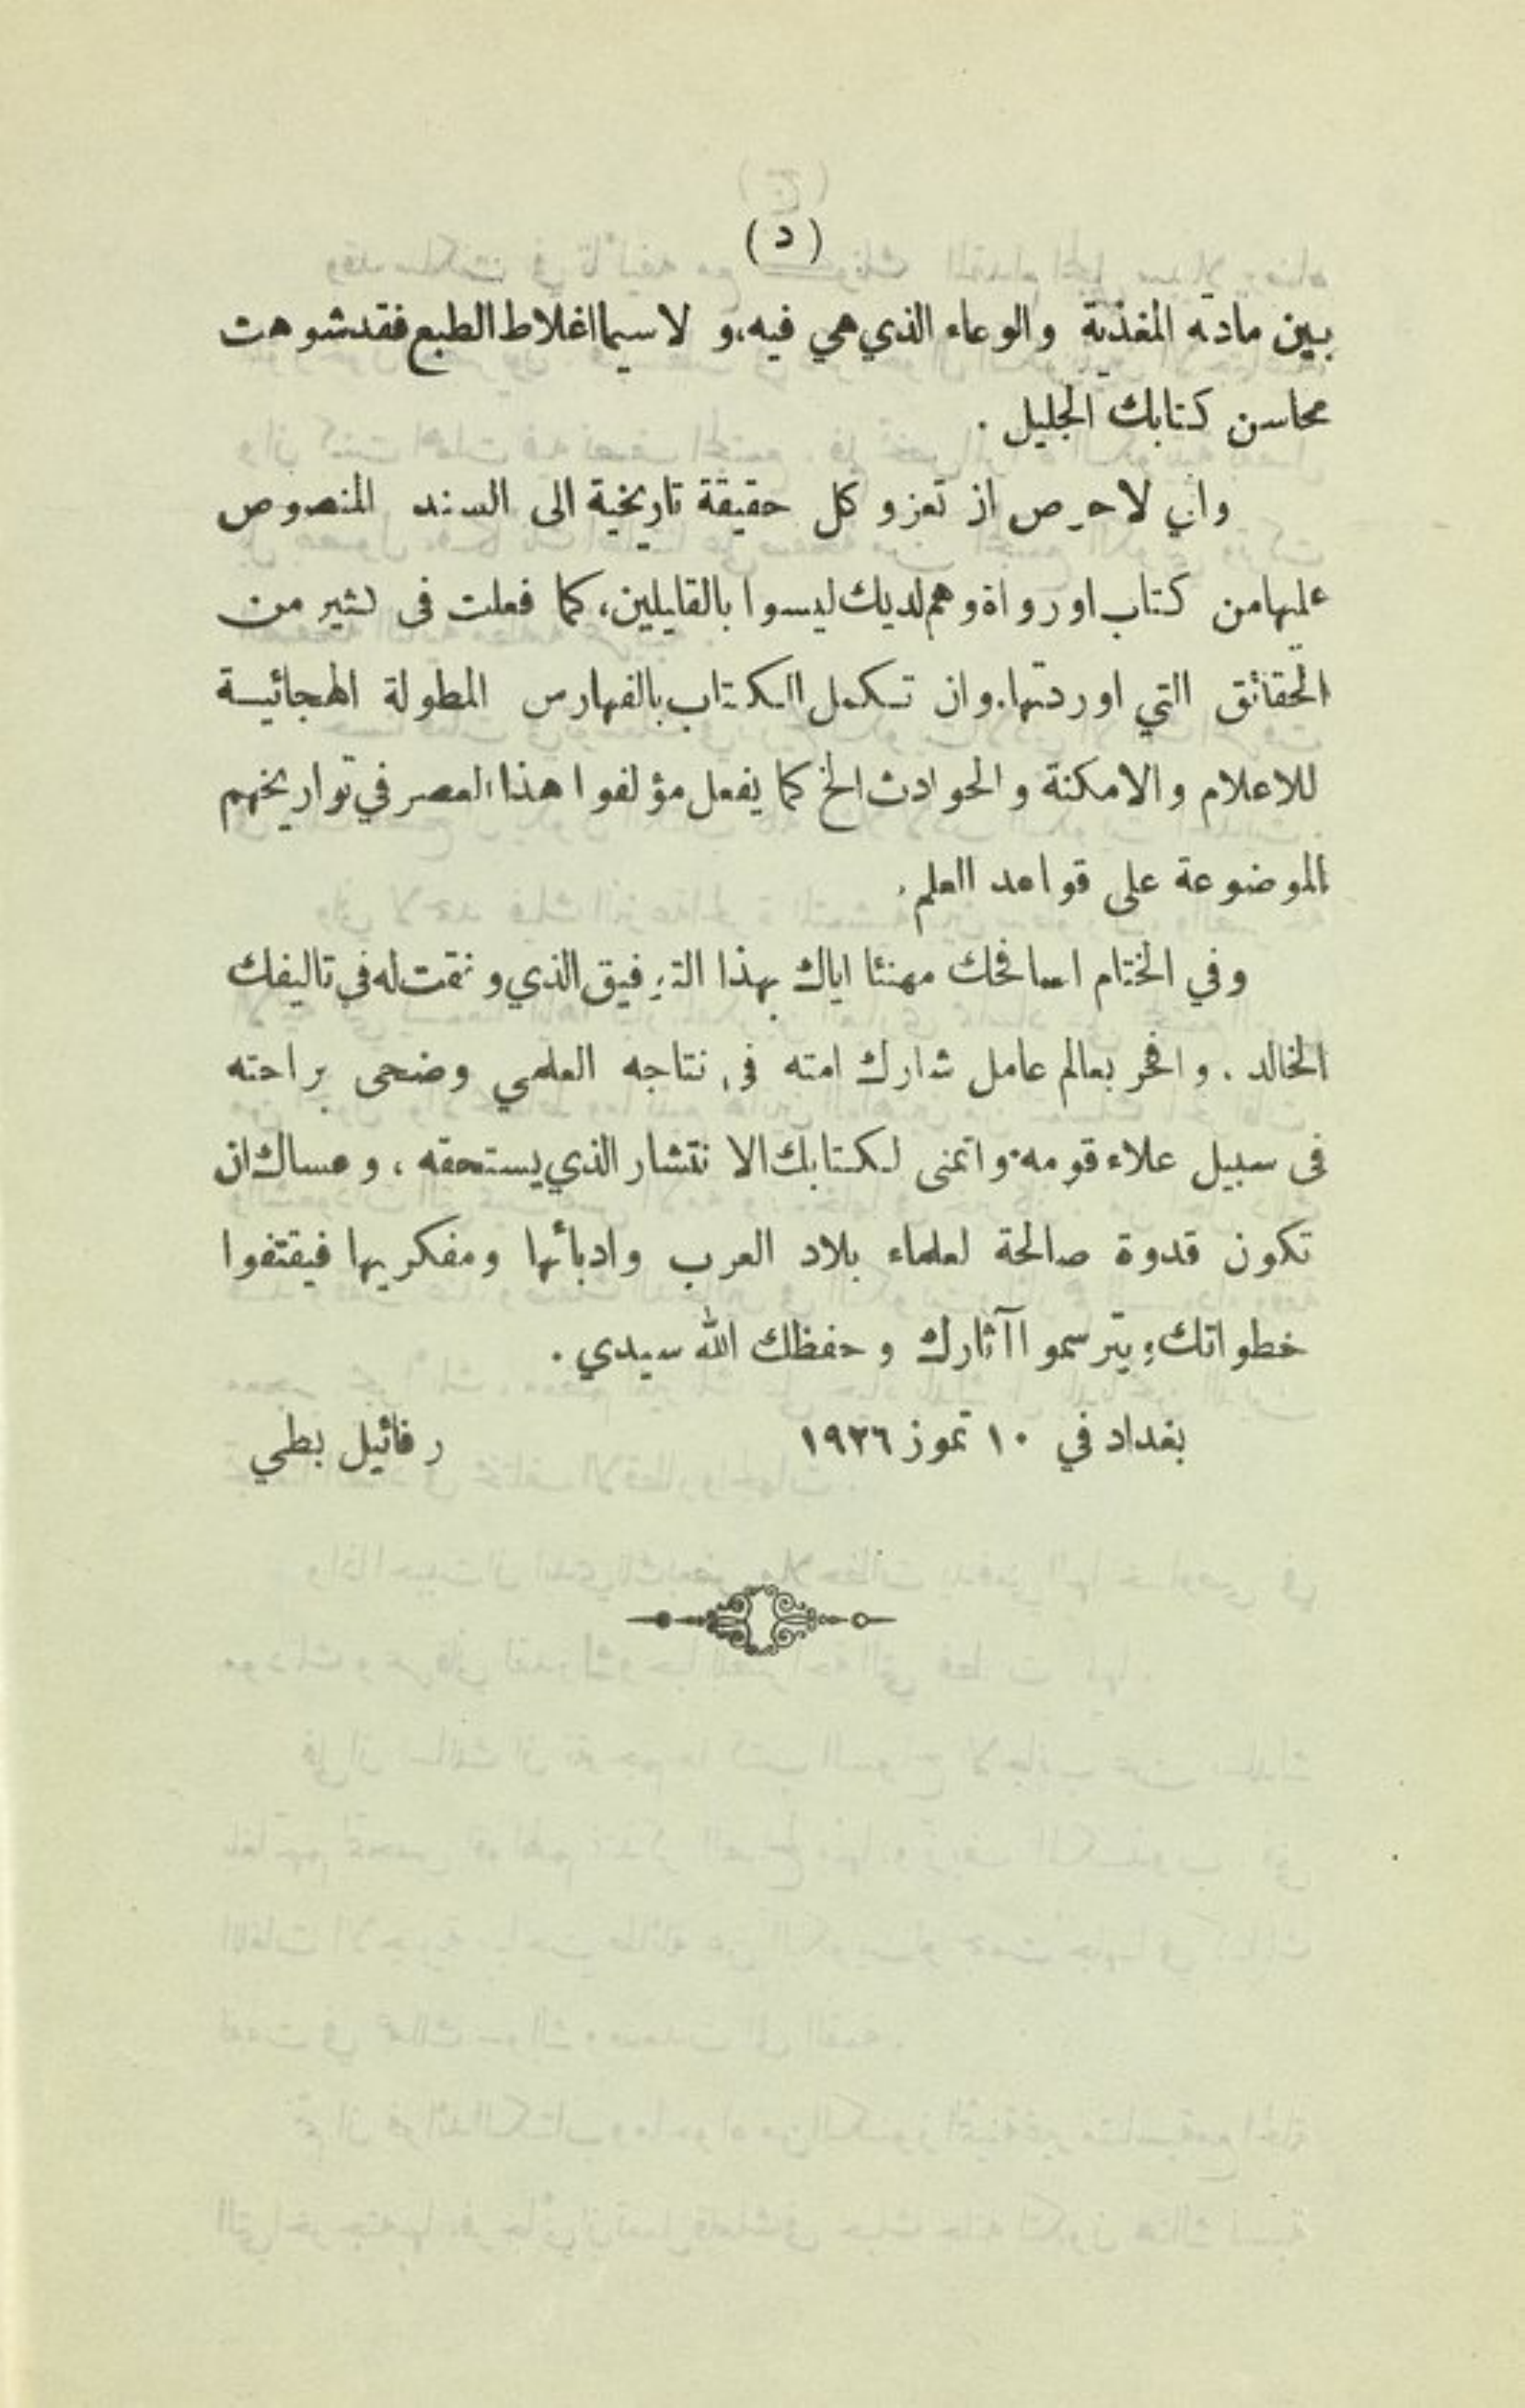 (د)
بين مادته المغذية والوعاء الذي هي فيه، ولا سيما اغلاط الطبع فقد شوهت
محاسن كتابك الجليل .
واني لاحرص ان تعزو كل حقيقة تاريخية الى السند المنصوص
عليها من كتاب او رواة وهم لديك ليسوا بالقليلين، كما فعلت في كثير من
الحقائق التي اوردتها. وان تكمل الكتاب بالفهارس المطولة الهجائية
للاعلام والامكنة والحوادث الخ كما يفعل مؤلفوا هذا العصر في تواريخهم
الموضوعة على قواعد العلم.
وفي الختام اصافحك مهنئا اياك بهذا التوفيق الذي وفقت له في تاليفك
الخالد . وافخر بعالم عامل شارك امته في نتاجه العلمي وضحى براحته
في سبيل علاء قومه. واتمنى لكتابك الانتشار الذي يستحقه ، وعساك ان
تكون قدوة صالحة لعلماء بلاد العرب وادبائها ومفكريها فيقتفوا
خطواتك ويترسموا آثارك وحفظك الله سيدي .
بغداد في ١٠ تموز ١٩٢٦ رفائيل بطي